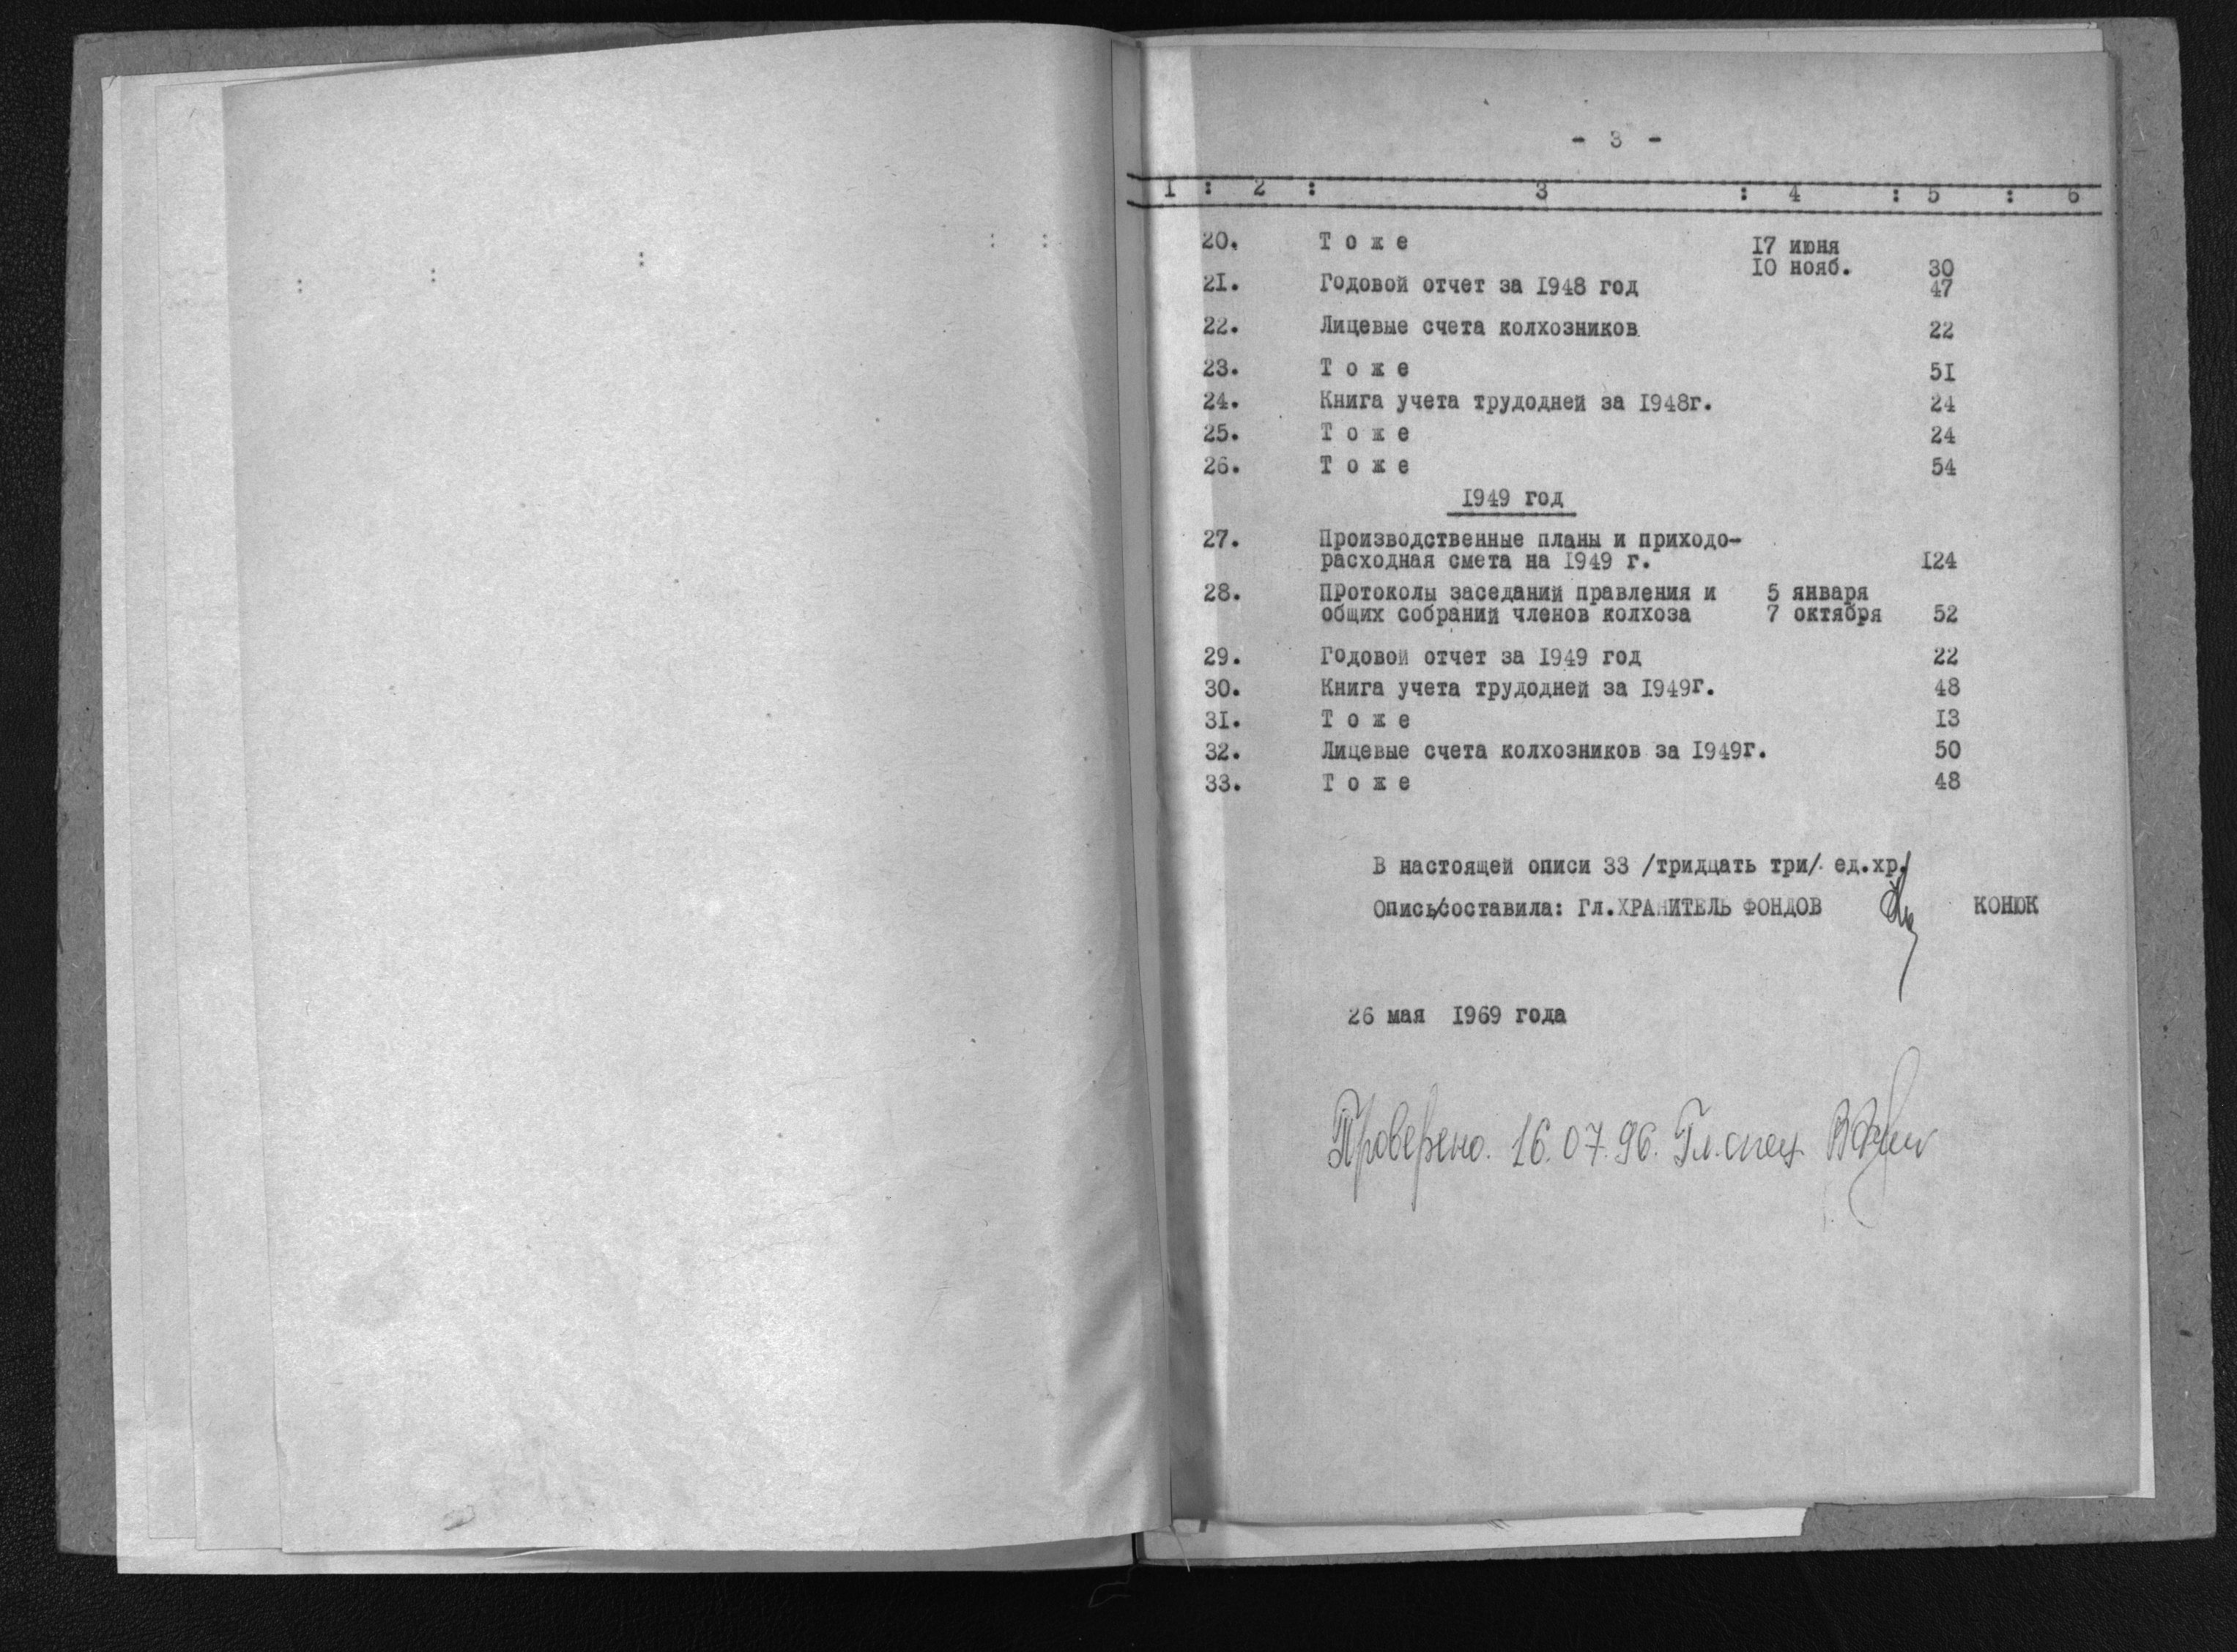 - 3 -
I : 2 : 3 : 4 : 5 : 6
20. Т о ж е 17 июня
10 нояб. 30
21. Годовой отчет за 1948 год 47
22. Лицевые счета колхозников 22
23. Т о ж е 51
24. Книга учета трудодней за 1948г. 24
25. Т о ж е 24
26. Т о ж е 54
1949 год
27. Производственные планы и приходо-
расходная смета на 1949 г. 124
28. Протоколы заседаний правления и 5 января
общих собраний членов колхоза 7 октября 52
29. Годовой отчет за 1949 год 22
30. Книга учета трудодней за 1949г. 48
31. Т о ж е 13
32. Лицевые счета колхозников за 1949г. 50
33. Т о ж е 48
В настоящей описи 33 /тридцать три/ ед.хр.
Опись/составила: Гл.ХРАНИТЕЛЬ ФОНДОВ КОНЮК
26 мая 1969 года
Проверено. 16.07.96. Гл.спец.